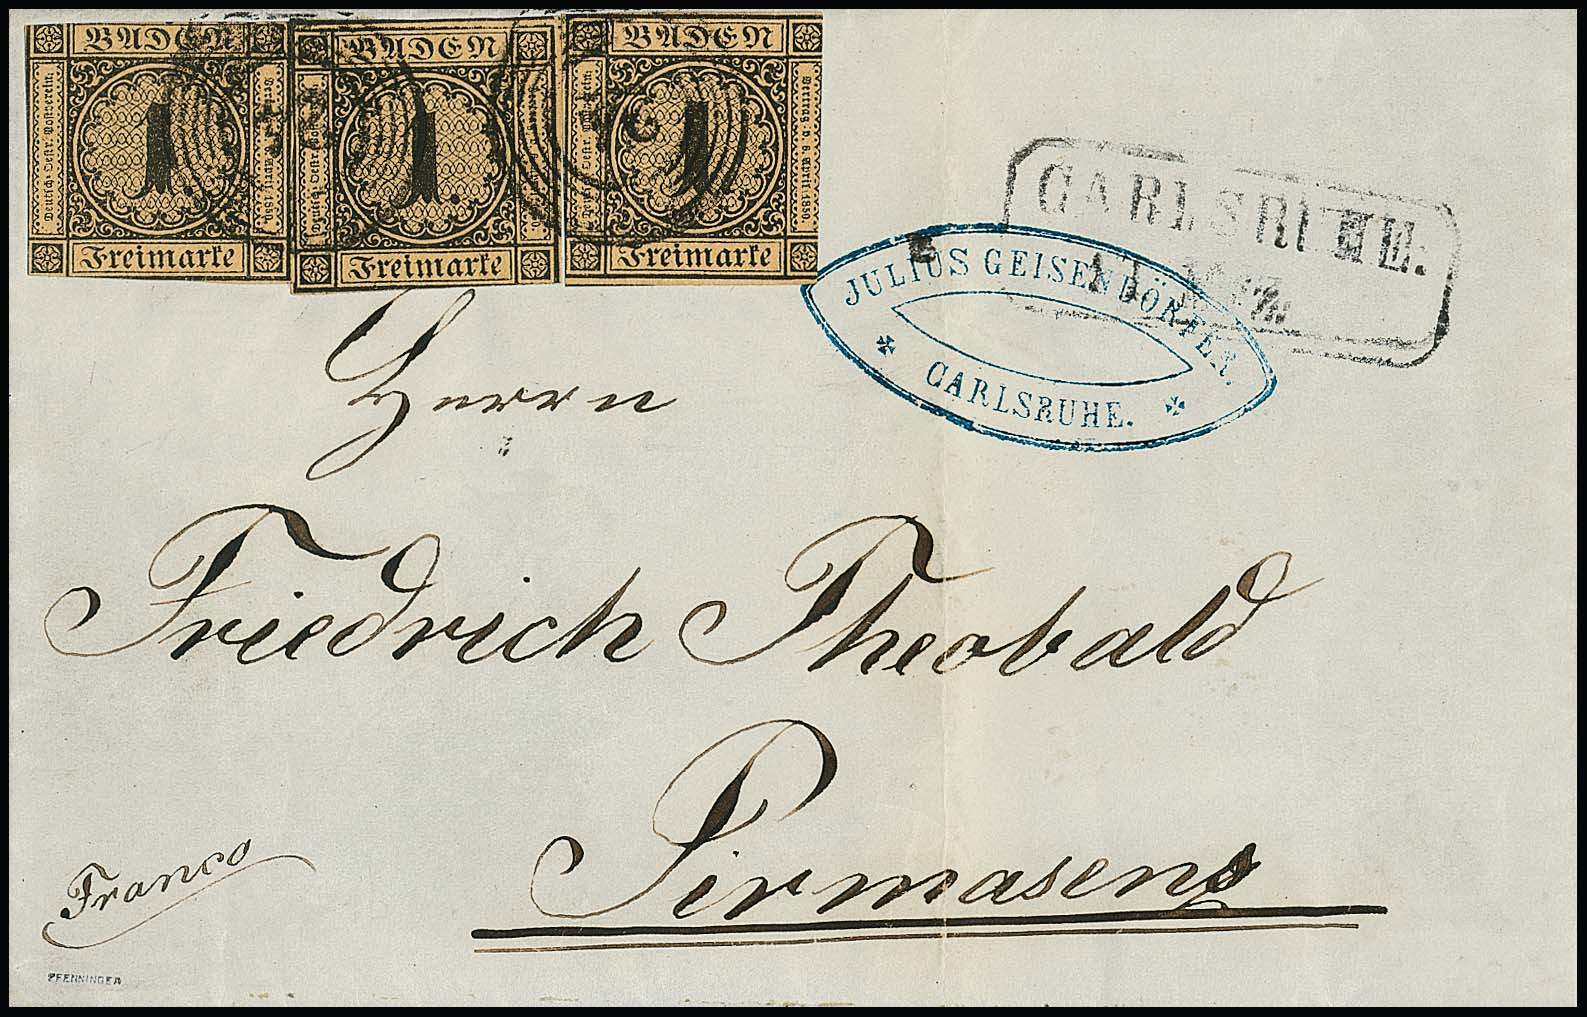 BADEN
Deutsch-Oestr. Postverein.
1
Vertrag v. 6 April 1850.
Freimarke
BADEN
Deutsch-Oestr. Postverein.
1.
Freimarke
BADEN
1
Vertrag v. 6 April 1850.
Freimarke
CARLSRUHE.
JULIUS GEISENDÖRFER.
CARLSRUHE.
Herrn
Friedrich Theobald
Pirmasens
Franco
PFENNINGER